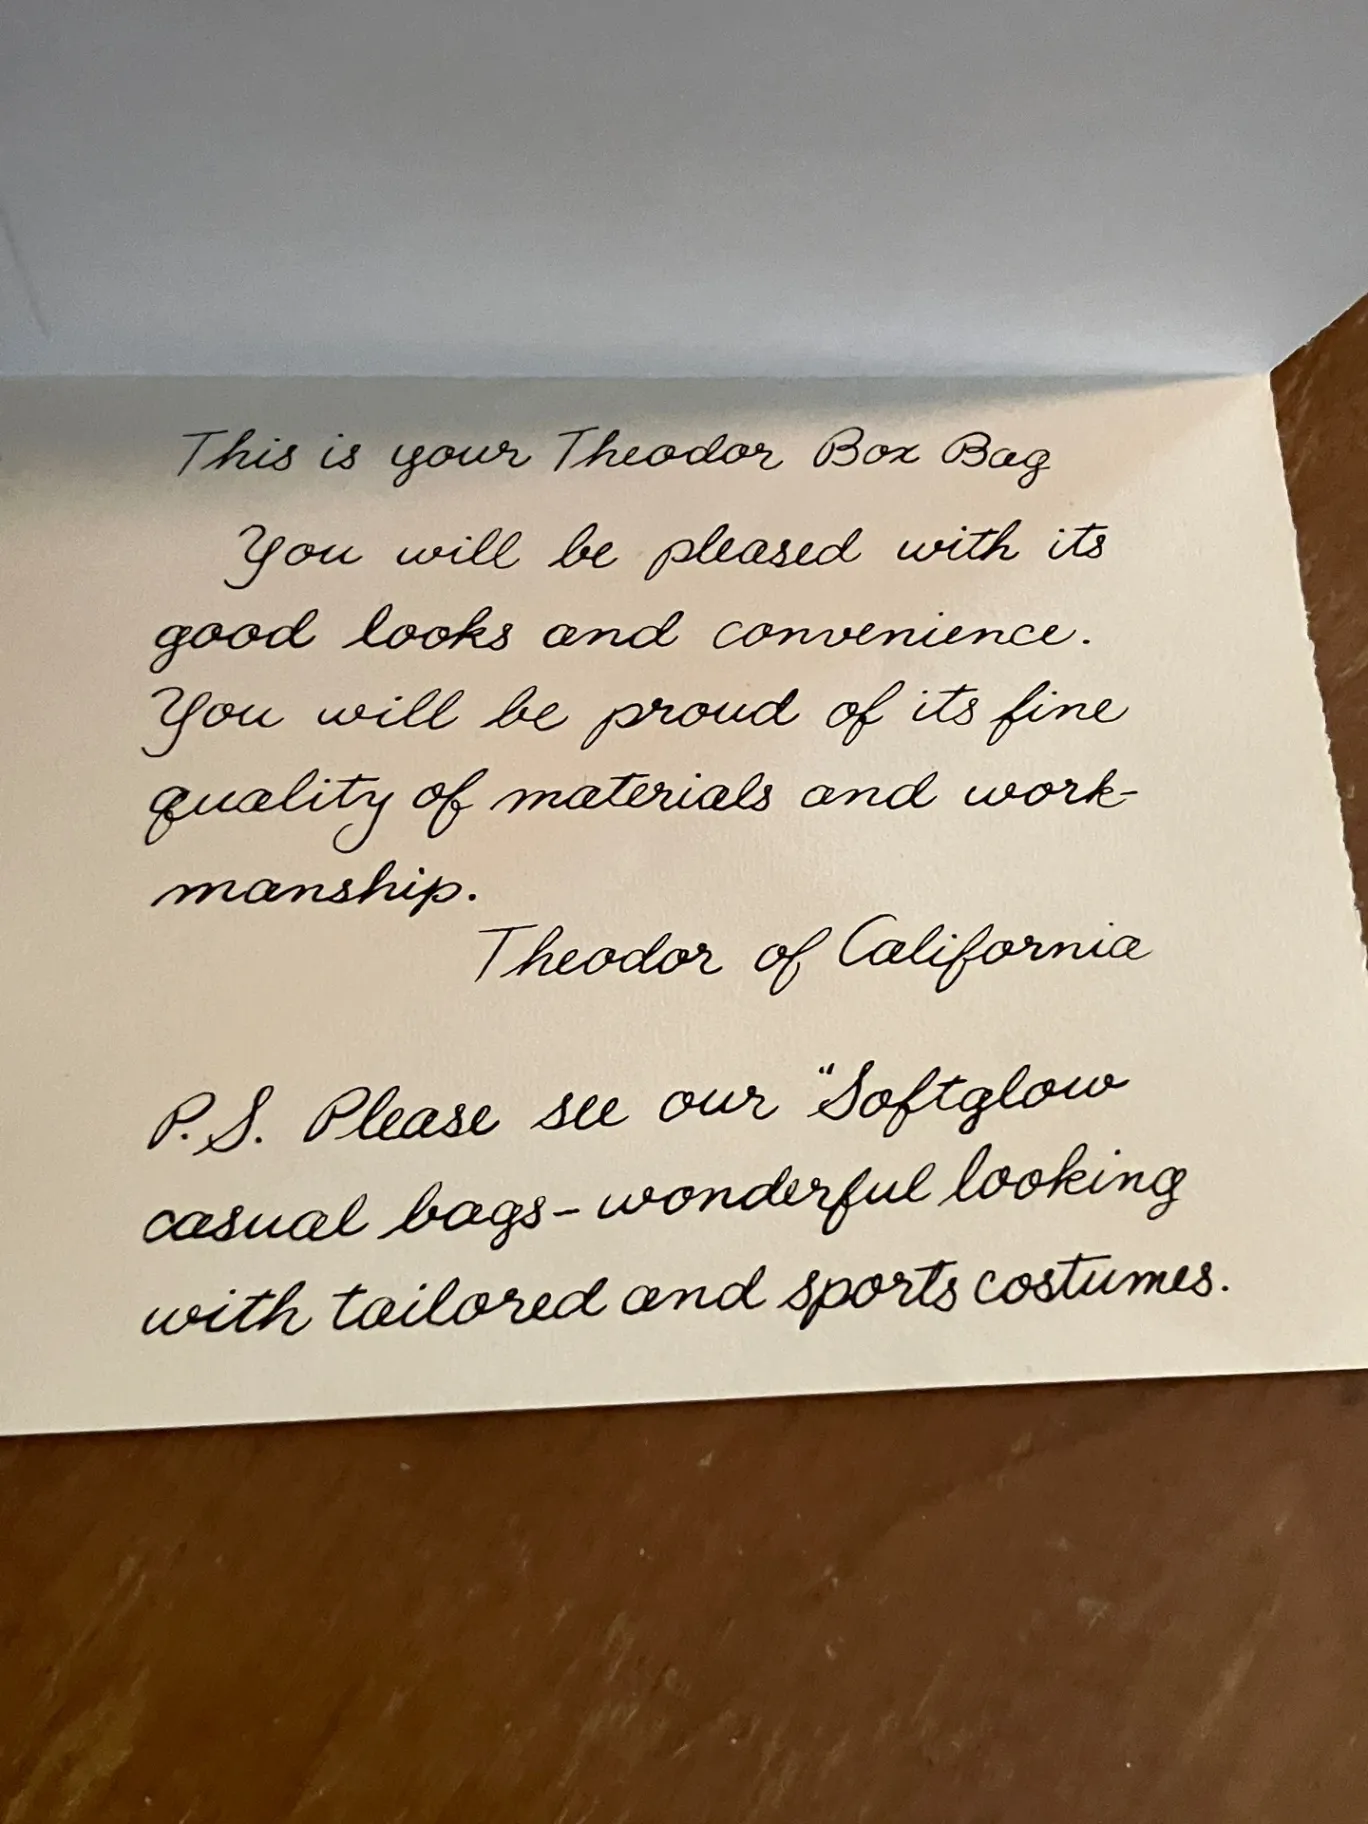 This is your Theodor Box Bag
You will be pleased with its
good looks and convenience.
You will be proud of its fine
quality of materials and work-
manship.
Theodor of California
P.S. Please see our "Softglow
casual bags - wonderful looking
with tailored and sports costumes.